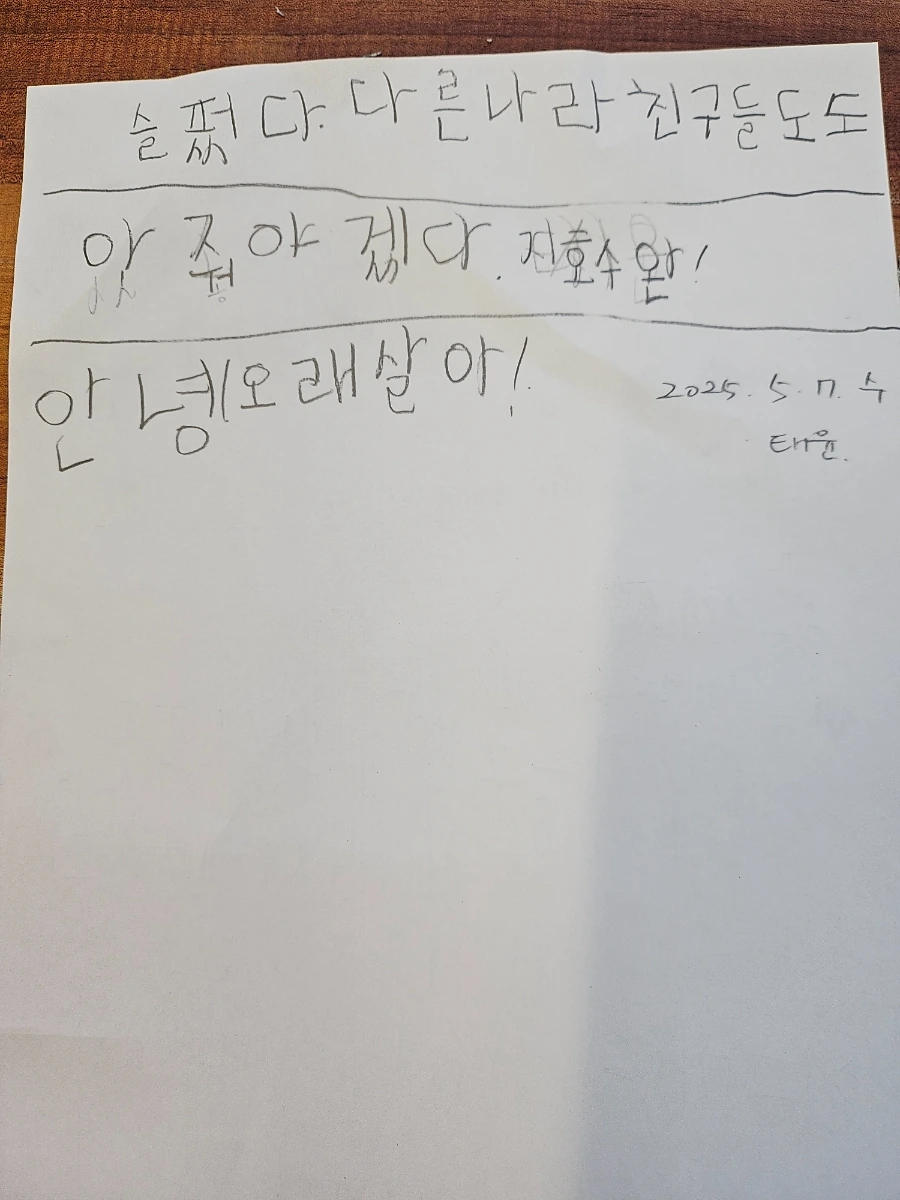 슬펐다. 다른나라 친구들도 도
았 줘야 겠다. 지호수완!
안녕! 오래 살아!
2025. 5. 7. 수
태윤.